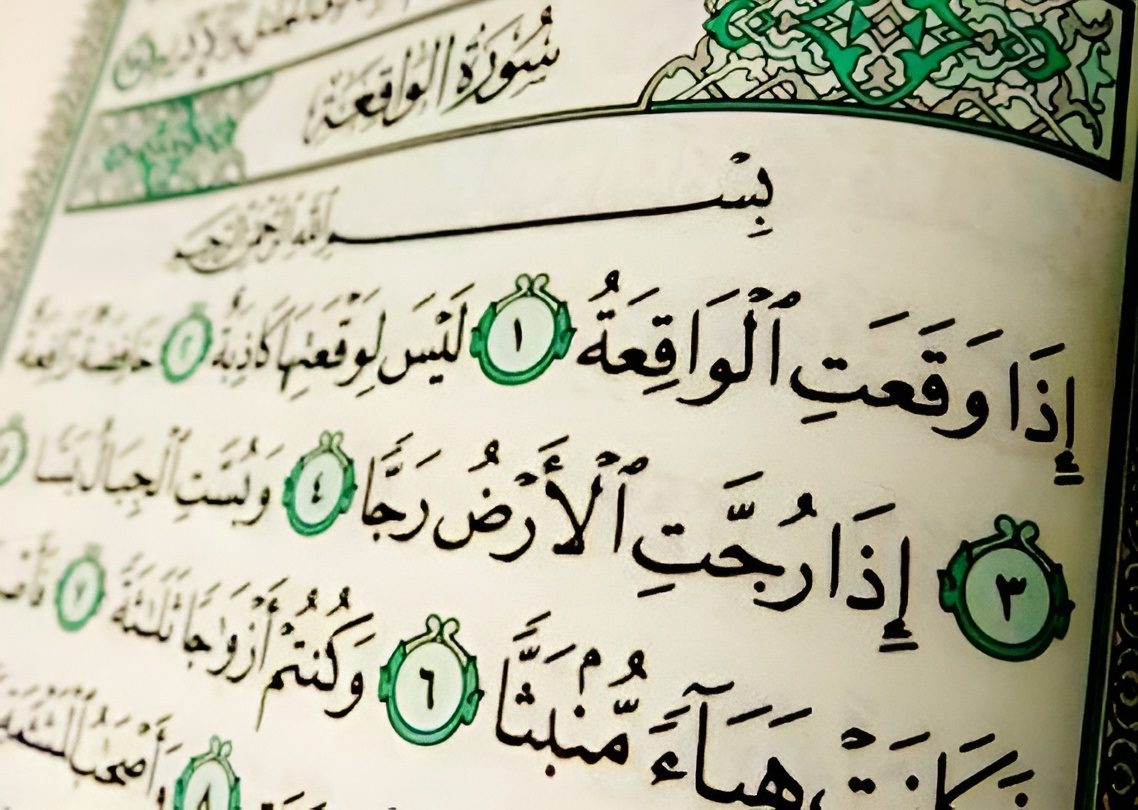 سُورَةُ الوَاقِعَة
بِسْمِ اللَّهِ الرَّحْمَٰنِ الرَّحِيمِ
إِذَا وَقَعَتِ ٱلْوَاقِعَةُ ١ لَيْسَ لِوَقْعَتِهَا كَاذِبَةٌ ٢ خَافِضَةٌ رَّافِعَةٌ
٣ إِذَا رُجَّتِ ٱلْأَرْضُ رَجًّا ٤ وَبُسَّتِ ٱلْجِبَالُ بَسًّا ٥
فَكَانَتْ هَبَآءً مُّنۢبَثًّا ٦ وَكُنتُمْ أَزْوَٰجًا ثَلَٰثَةً ٧
وَأَصْحَٰبُ ٱلْمَشْـَٔمَةِ
٨